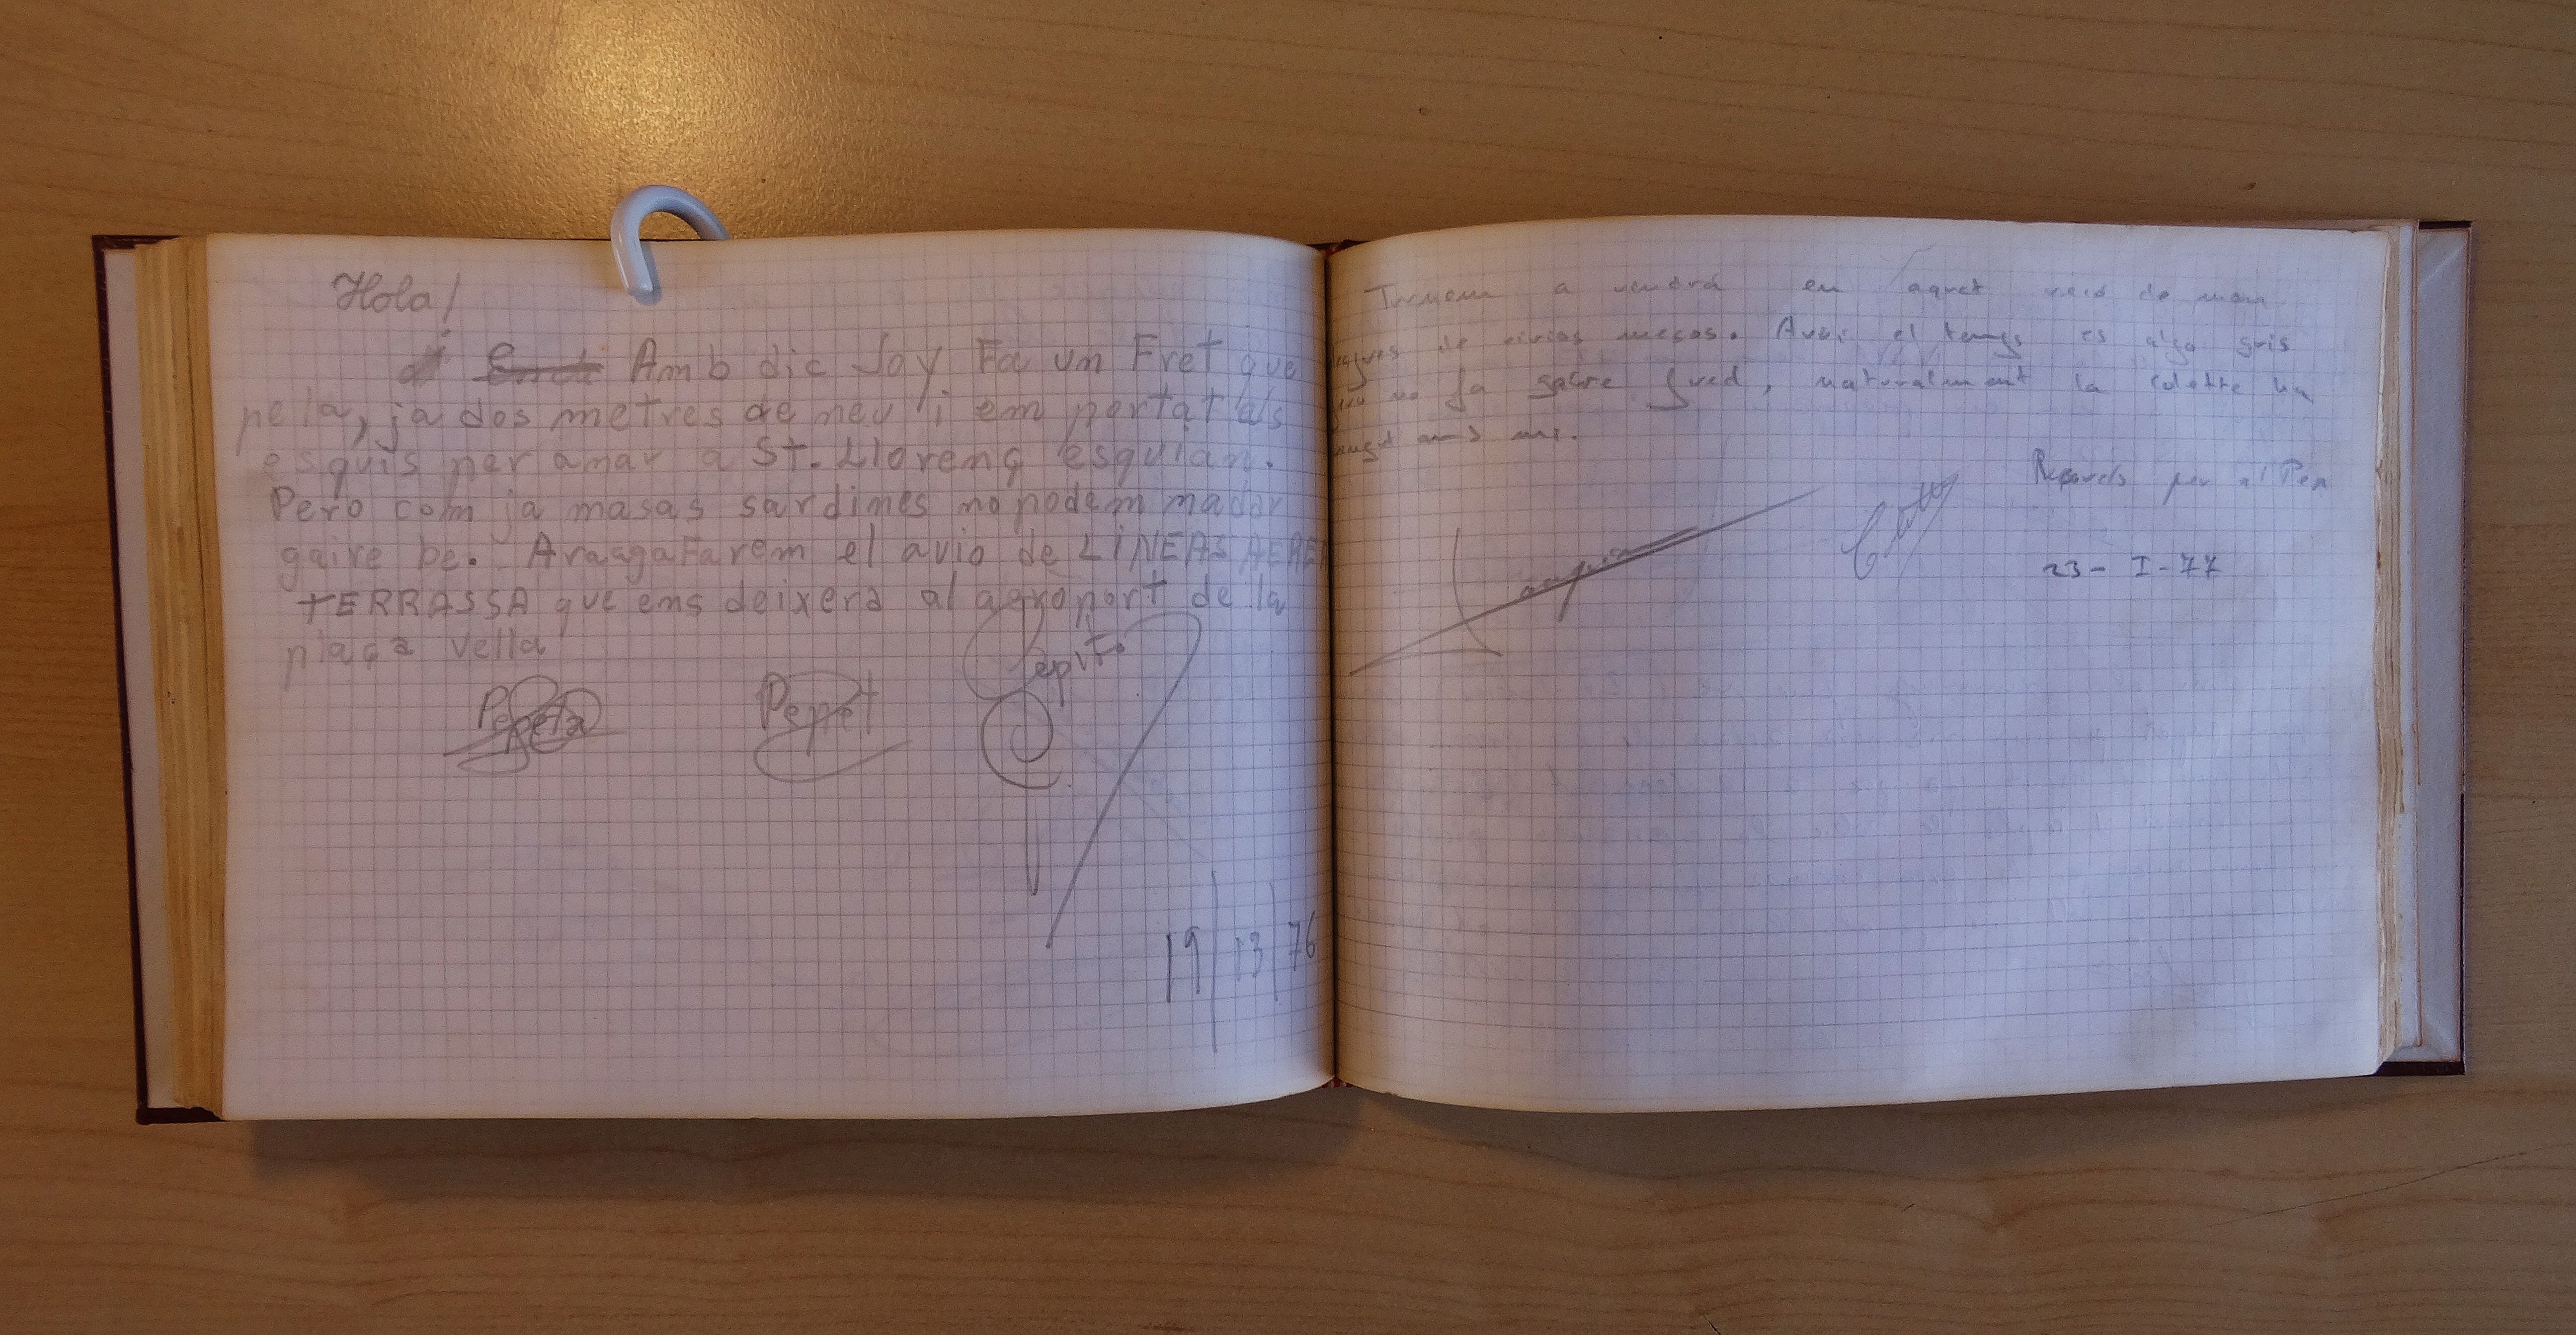 Hola!
Amb dic Joy Fa un Fret que
pela, ja dos metres de neu i em portat els
esquis per anar a St. Llorenç esquian.
Pero com ja masas sardines no podem nadar
gaire be. Ara agafarem el avio de LINEAS AEREA
TERRASSA que ens deixera al aeroport de la
plaça vella
Pepeta Pepet Pepito
19/13/76
Tornem a vindra en aquet reco de mon
de mesos. Avui el temps es alga gris
no fa gaire fred, naturalment la colette ha
vingut amb mi.
Records per al Pep
23-I-77